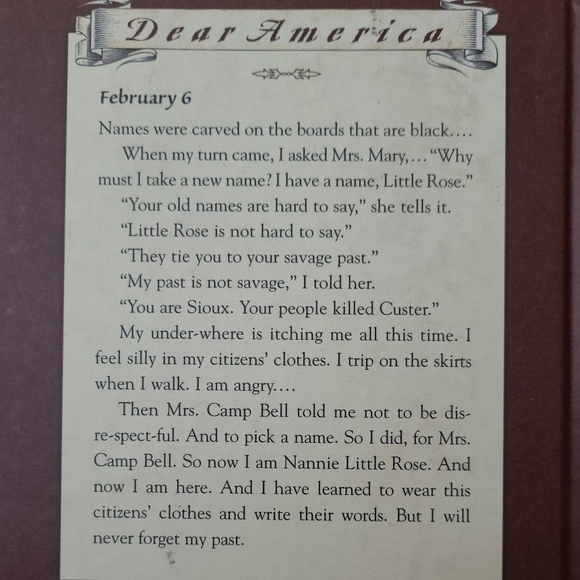 Dear America
February 6
Names were carved on the boards that are black....
When my turn came, I asked Mrs. Mary,... “Why
must I take a new name? I have a name, Little Rose.”
“Your old names are hard to say,” she tells it.
“Little Rose is not hard to say.”
“They tie you to your savage past.”
“My past is not savage,” I told her.
“You are Sioux. Your people killed Custer.”
My under-where is itching me all this time. I
feel silly in my citizens’ clothes. I trip on the skirts
when I walk. I am angry....
Then Mrs. Camp Bell told me not to be dis-
re-spect-ful. And to pick a name. So I did, for Mrs.
Camp Bell. So now I am Nannie Little Rose. And
now I am here. And I have learned to wear this
citizens’ clothes and write their words. But I will
never forget my past.